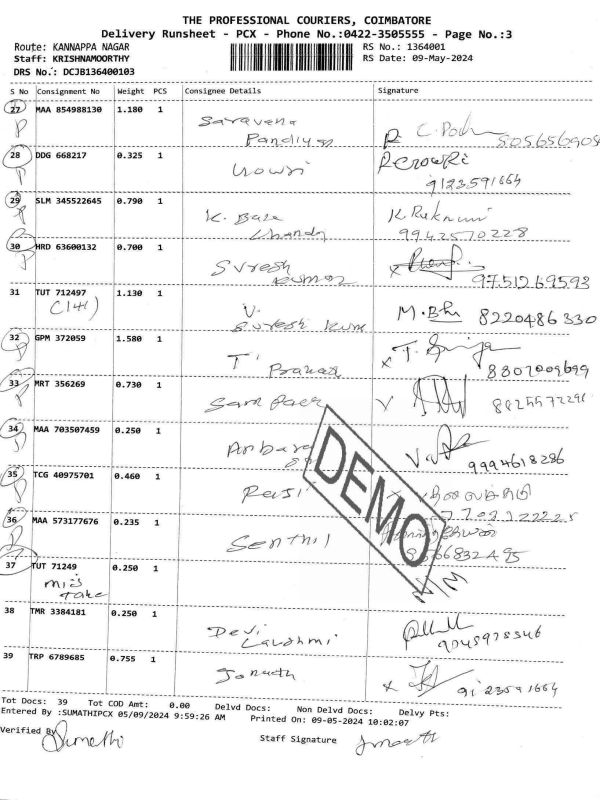 THE PROFESSIONAL COURIERS, COIMBATORE
Delivery Runsheet - PCX - Phone No.:0422-3505555 - Page No.:3
Route: KANNAPPA NAGAR RS No.: 1364001
Staff: KRISHNAMOORTHY RS Date: 09-May-2024
DRS No.: DCJB136400103
S No Consignment No Weight PCS Consignee Details Signature
27 MAA 854988130 1.180 1 Saravana
Pandiyan
28 DDG 668217 0.325 1
9123591664
29 SLM 345522645 0.790 1 K. Bala
K. Rukmani
9942570228
30 HRD 63600132 0.700 1 Suresh
Kumar 9751269593
31 TUT 712497 1.130 1 V.
Suresh Kum M.Bhu 8220486330
32 GPM 372059 1.580 1 T.
33 MRT 356269 0.730 1
34 MAA 703507459 0.250 1 Anbara
9994618286
35 TCG 40975701 0.460 1 Rasii
36 MAA 573177676 0.235 1 Senthil
37 TUT 71249 0.250 1
mis
take
38 TMR 3384181 0.250 1 Devi
Lakshmi
39 TRP 6789685 0.755 1
9123591664
DEMO
Tot Docs: 39 Tot COD Amt: 0.00 Delvd Docs: Non Delvd Docs: Delvy Pts:
Entered By :SUMATHIPCX 05/09/2024 9:59:26 AM Printed On: 09-05-2024 10:02:07
Verified By Sumathi Staff Signature